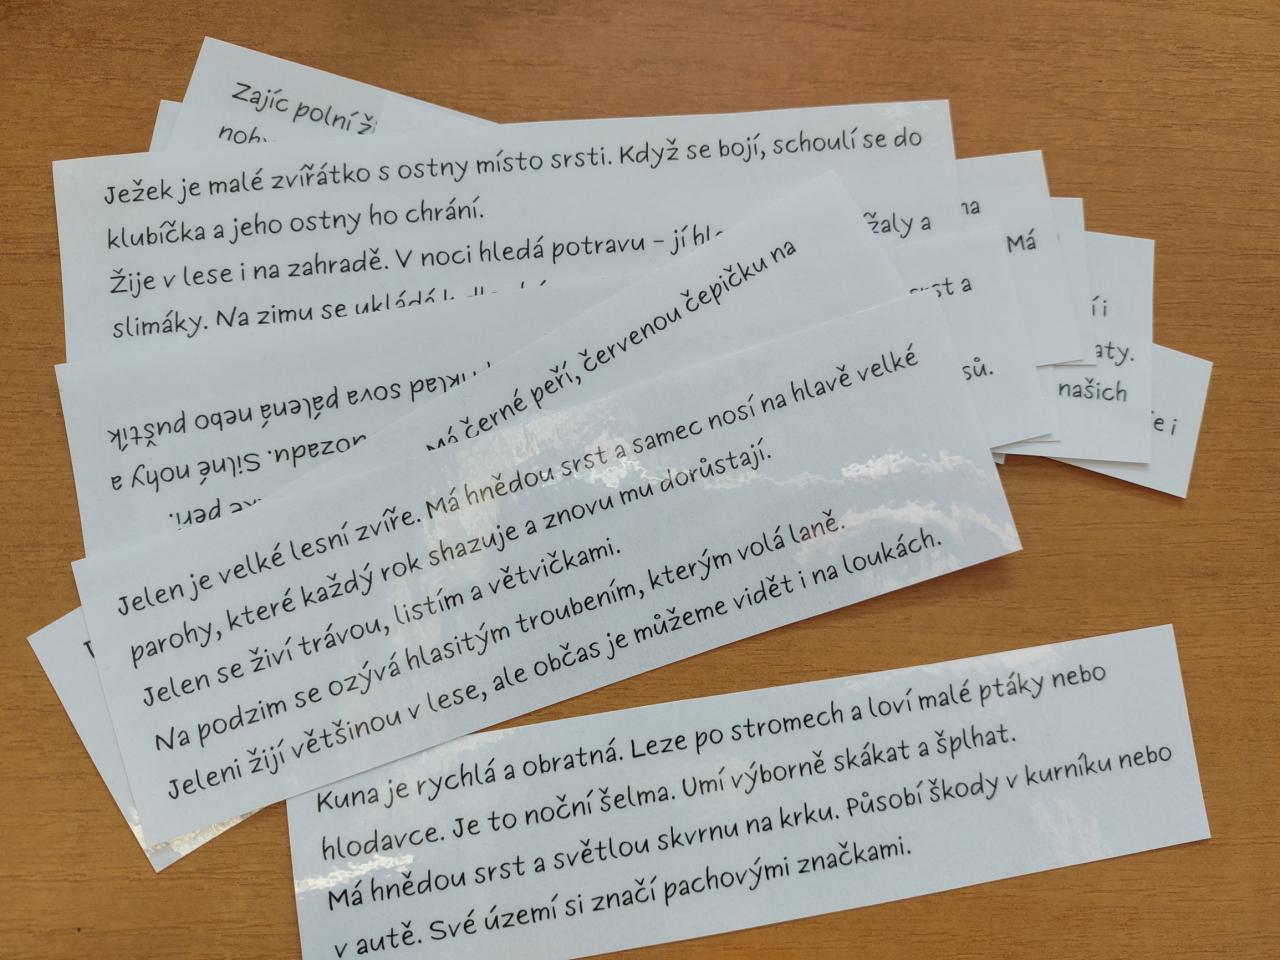 Zajíc polní
Ježek je malé zvířátko s ostny místo srsti. Když se bojí, schoulí se do
klubíčka a jeho ostny ho chrání.
Žije v lese i na zahradě. V noci hledá potravu – jí
slimáky. Na zimu se ukládá
na
žaly a
Má
srst a
í i
aty.
sů.
našich
e i
sova pálená nebo puštík
Silné nohy a
Má černé peří, červenou čepičku na
Jelen je velké lesní zvíře. Má hnědou srst a samec nosí na hlavě velké
parohy, které každý rok shazuje a znovu mu dorůstají.
Jelen se živí trávou, listím a větvičkami.
Na podzim se ozývá hlasitým troubením, kterým volá laně.
Jeleni žijí většinou v lese, ale občas je můžeme vidět i na loukách.
Kuna je rychlá a obratná. Leze po stromech a loví malé ptáky nebo
hlodavce. Je to noční šelma. Umí výborně skákat a šplhat.
Má hnědou srst a světlou skvrnu na krku. Působí škody v kurníku nebo
v autě. Své území si značí pachovými značkami.